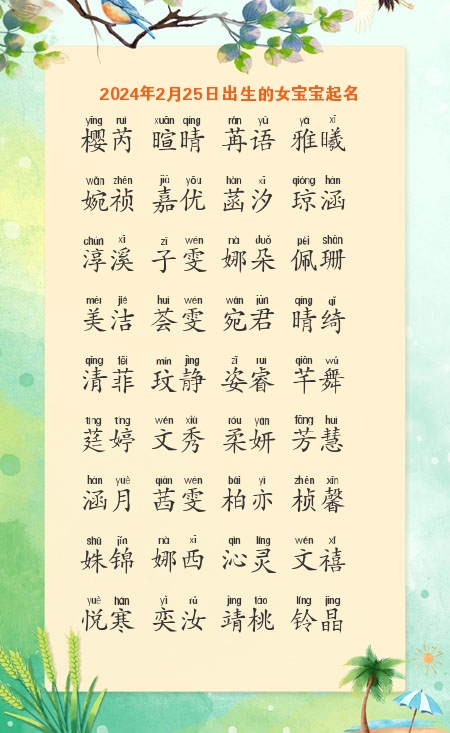 2024年2月25日出生的女宝宝起名
yīng ruì xuān qíng rán yǔ yǎ xī
樱芮 暄晴 苒语 雅曦
wǎn zhēn jiā yōu hàn xī qióng hán
婉祯 嘉优 菡汐 琼涵
chún xī zǐ wén nà duǒ pèi shān
淳溪 子雯 娜朵 佩珊
měi jié huì wén wǎn jūn qíng qǐ
美洁 荟雯 宛君 晴绮
qīng fēi mín jìng zī ruì qiān wǔ
清菲 玟静 姿睿 芊舞
tíng tíng wén xiù róu yán fāng huì
莛婷 文秀 柔妍 芳慧
hán yuè qiàn wén bǎi yì zhēn xīn
涵月 茜雯 柏亦 桢馨
shū jǐn nà xī qìn líng wén xǐ
姝锦 娜西 沁灵 文禧
yuè hán yì rǔ jìng táo líng jīng
悦寒 奕汝 靖桃 铃晶